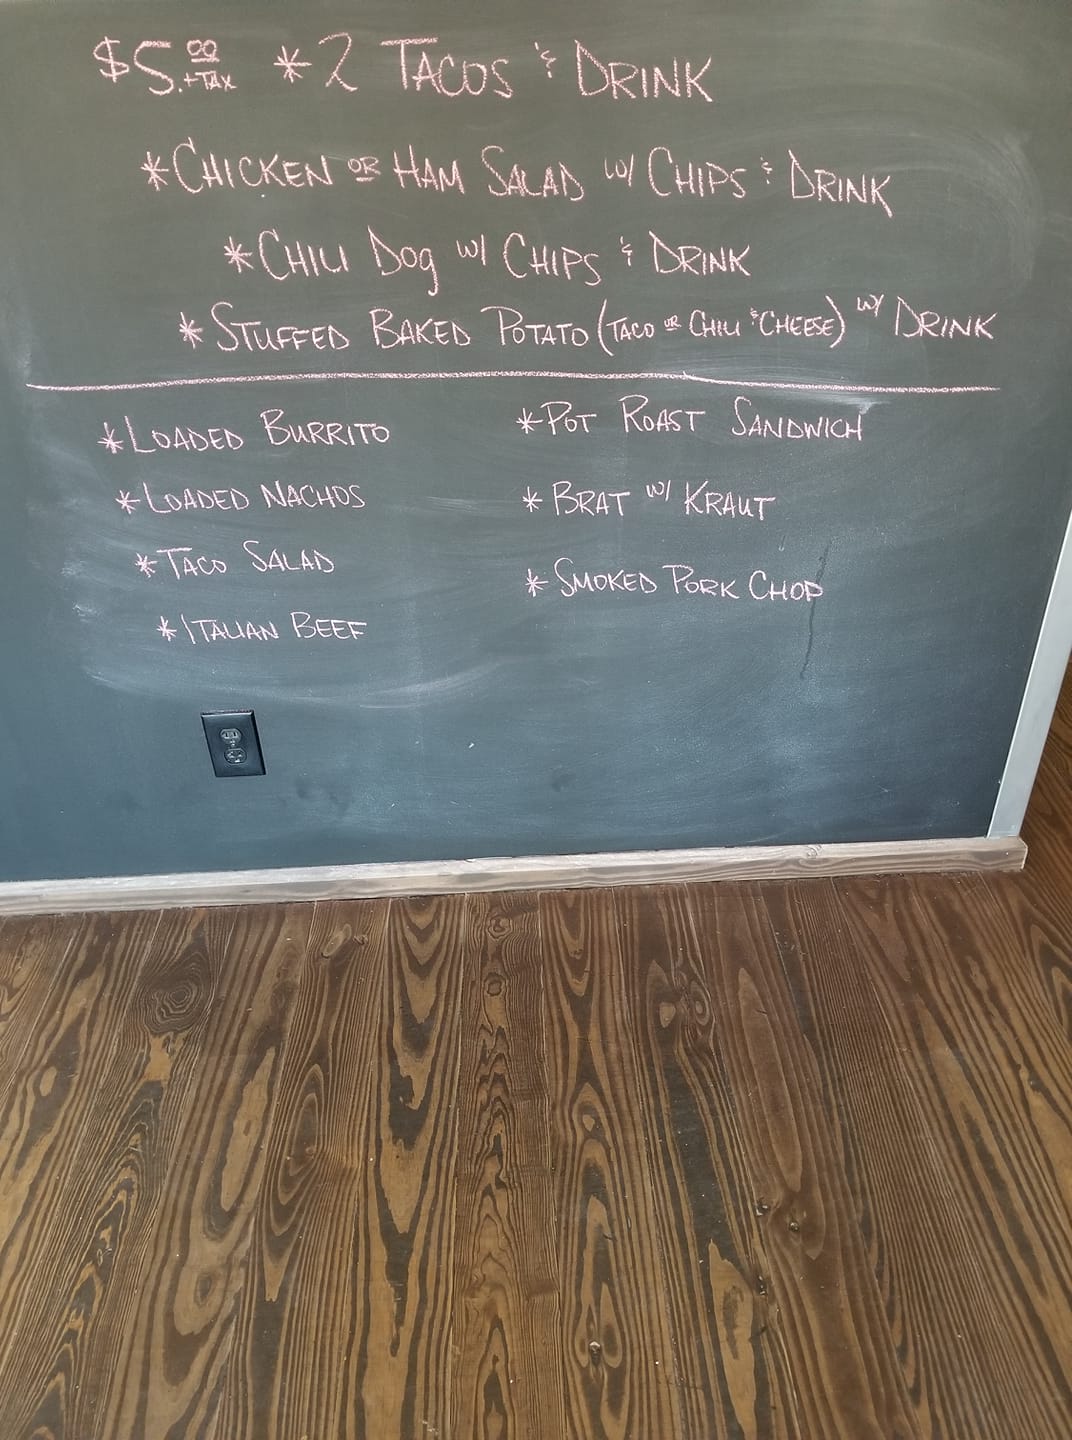 $5.00 +TAX *2 TACOS & DRINK
*CHICKEN OR HAM SALAD W/ CHIPS & DRINK
*CHILI DOG W/ CHIPS & DRINK
*STUFFED BAKED POTATO (TACO OR CHILI & CHEESE) W/ DRINK
*LOADED BURRITO
*LOADED NACHOS
*TACO SALAD
*ITALIAN BEEF
*POT ROAST SANDWICH
*BRAT W/ KRAUT
*SMOKED PORK CHOP